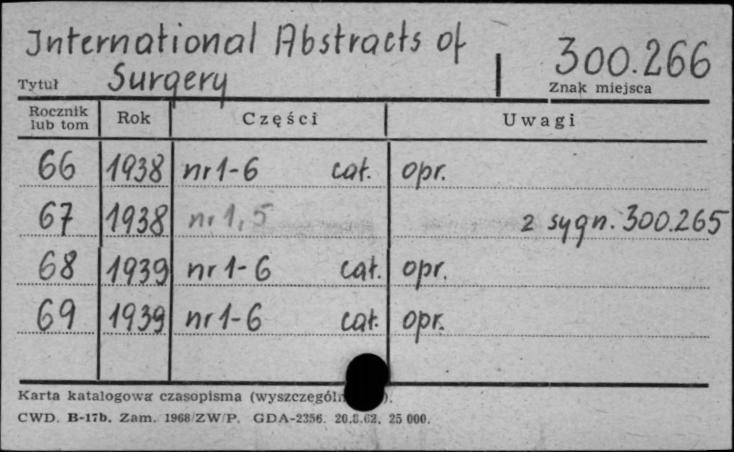 International Abstracts of
Tytuł Surgery
300.266
Znak miejsca
Rocznik lub tom Rok Części Uwagi
66 1938 nr 1-6 cał. opr.
67 1938 nr 1, 5 z sygn. 300.265
68 1939 nr 1-6 cał. opr.
69 1939 nr 1-6 cał. opr.
Karta katalogowa czasopisma
CWD. B-17b. Zam. 1968/ZW/P. GDA-2356. 20.8.62. 25 000.